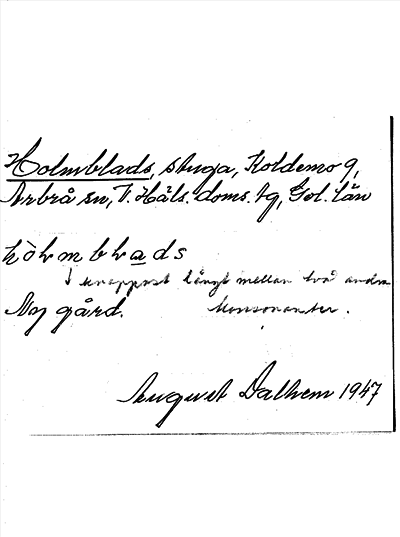 Holmblads, stuga, Koldemo 9,
Arbrå sn, V. Häls. doms. tg, Gvl. län
hòlmblads
l knappast långt mellan två andra
Ny gård. konsonanter.
August Dalhem 1947